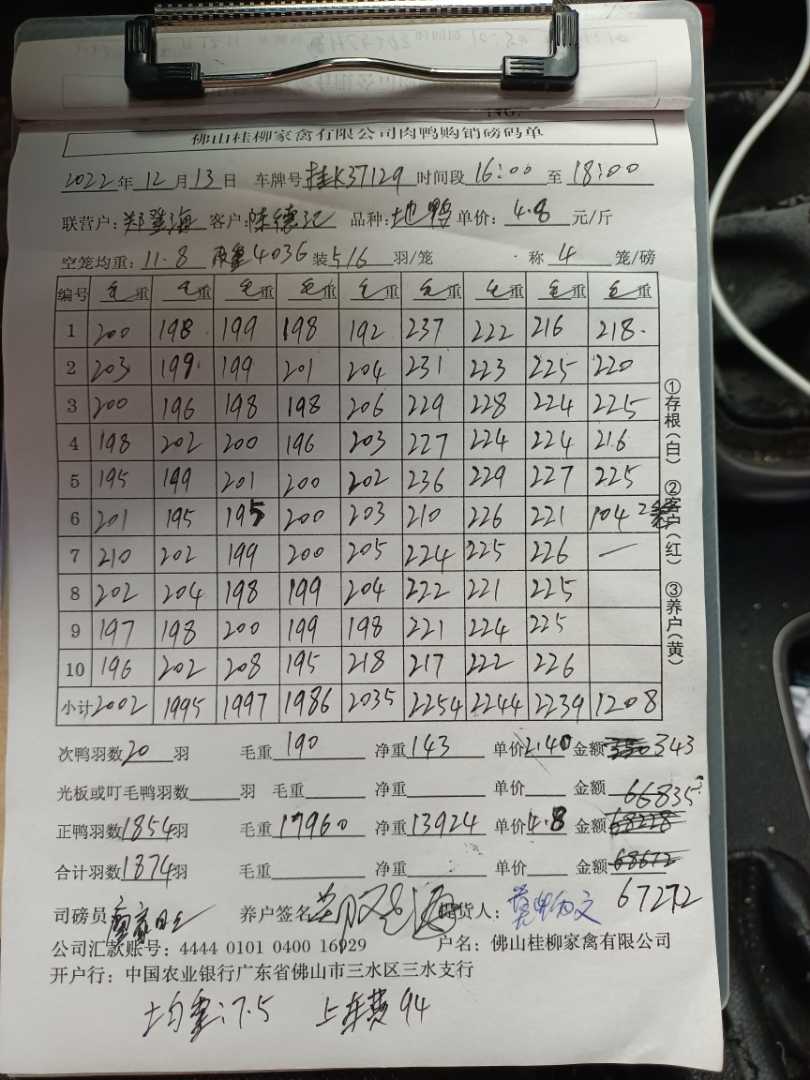 NO.
佛山桂柳家禽有限公司肉鸭购销磅码单
2022年 12月 13日 车牌号 桂K37129 时间段 16:00 至 18:00
联营户: 郑登海 客户: 陈德记 品种: 地鸭 单价: 4.8 元/斤
空笼均重: 11.8 皮重4036 装 5/6 羽/笼 · 称 4 笼/磅
编号 毛重 毛重 毛重 毛重 毛重 毛重 毛重 毛重 毛重
1 200 198 199 198 192 237 222 216 218
2 203 199 199 201 204 231 223 225 220
3 200 196 198 198 206 229 228 224 225
4 198 202 200 196 203 227 224 224 216
5 195 199 201 200 202 236 229 227 225
6 201 195 195 200 203 210 226 221 104 2笼
7 210 202 199 200 205 224 225 226 —
8 202 204 198 199 204 222 221 225
9 197 198 200 199 198 221 224 225
10 196 202 208 195 218 217 222 226
小计 2002 1995 1997 1986 2035 2254 2244 2239 1208
①存根(白) ②客户(红) ③养户(黄)
次鸭羽数 20 羽 毛重 190 净重 143 单价 2.40 金额 343
光板或叮毛鸭羽数 羽 毛重 净重 单价 金额
66835
正鸭羽数 1854 羽 毛重 17960 净重 13924 单价 4.8 金额 68228
合计羽数 1874 羽 毛重 净重 单价 金额 68672
67272
司磅员 养户签名 提货人:
公司汇款账号: 4444 0101 0400 16929 户名: 佛山桂柳家禽有限公司
开户行: 中国农业银行广东省佛山市三水区三水支行
均重: 7.5 上车费 94